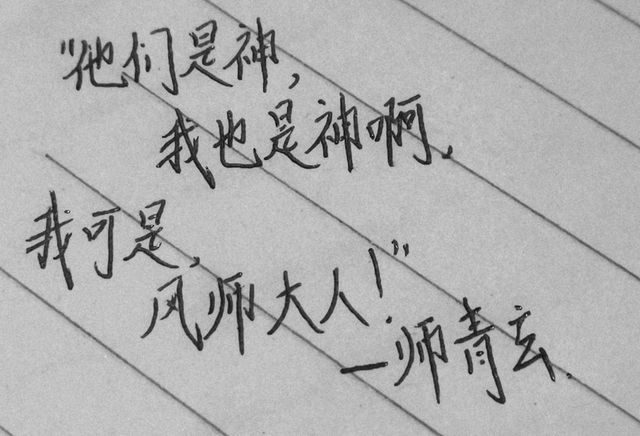 “他们是神，
我也是神啊，
我可是，
风师大人！”
—师青玄.